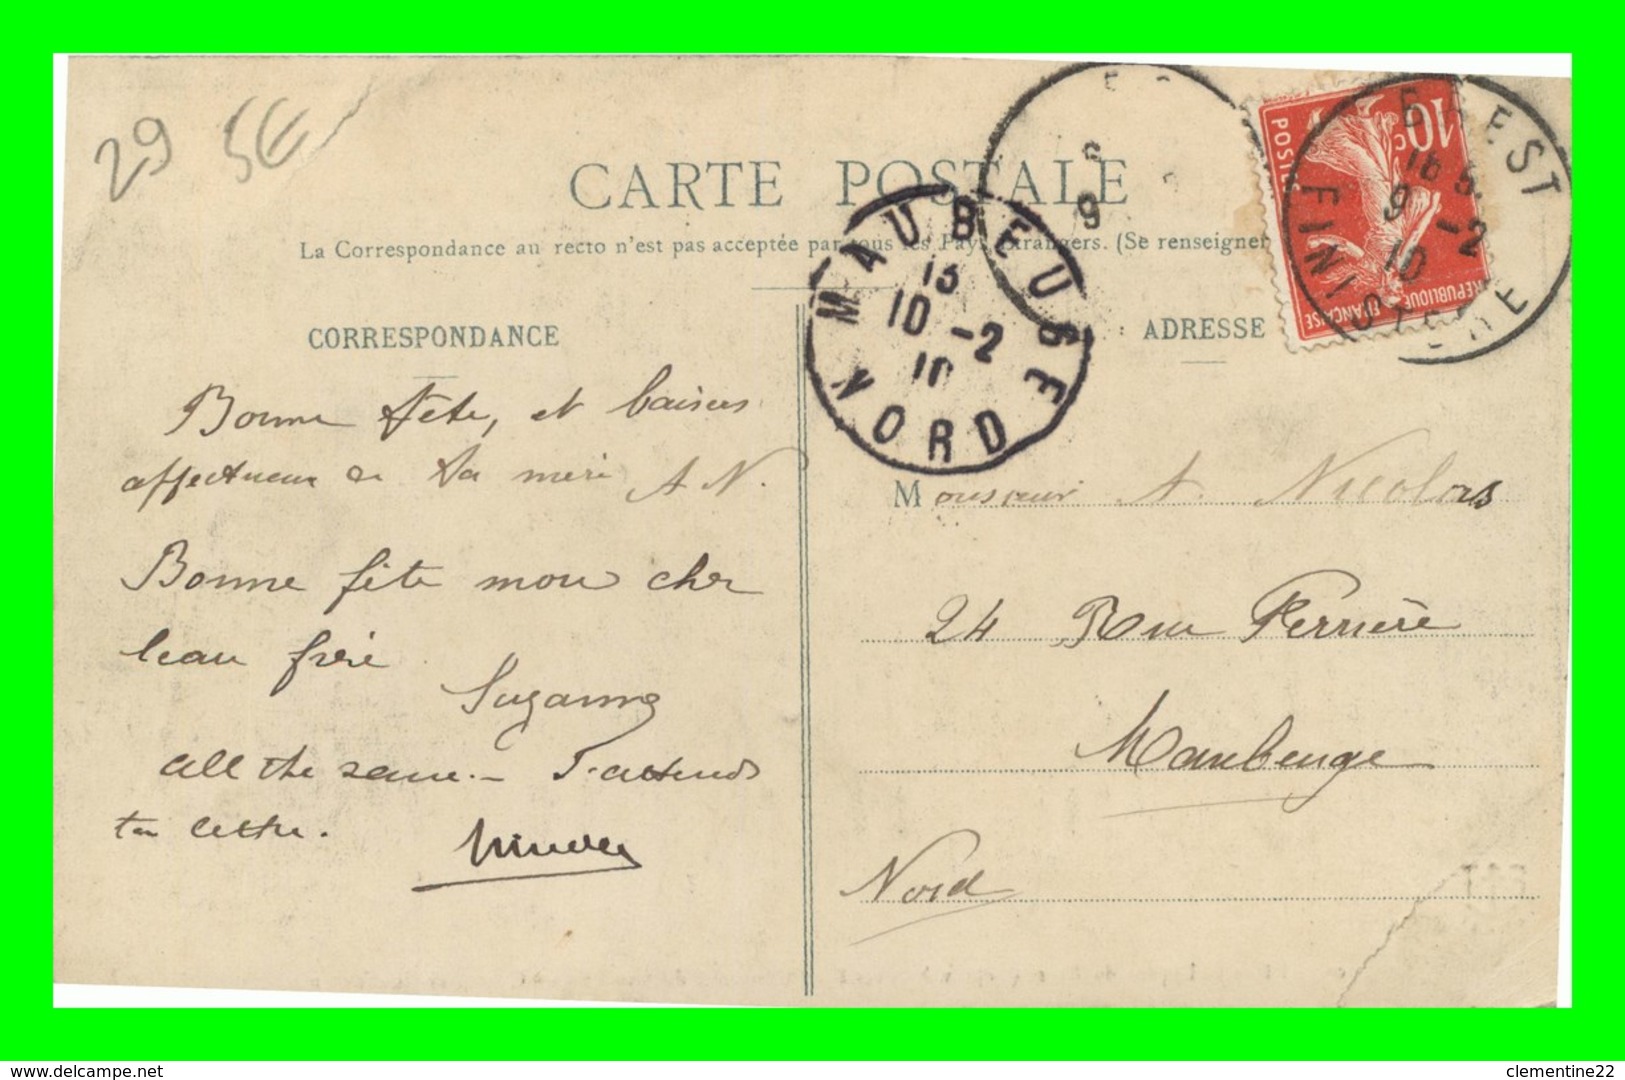 29 5E
CARTE POSTALE
La Correspondance au recto n'est pas acceptée par tous les Pays Etrangers. (Se renseigner
BREST
16 5
9 -2
10
FINISTERE
10c
POSTES
REPUBLIQUE FRANÇAISE
MAUBEUGE
13
10 -2
10
NORD
CORRESPONDANCE
Bonne fête, et baisers
affectueux de ta mère A N.
Bonne fête mon cher
beau frère
Suzanne
all the same. - J'attends
ta lettre.
ADRESSE
Monsieur A. Nicolas
24 Rue Ferrière
Maubeuge
Nord
www.delcampe.net
clementine22